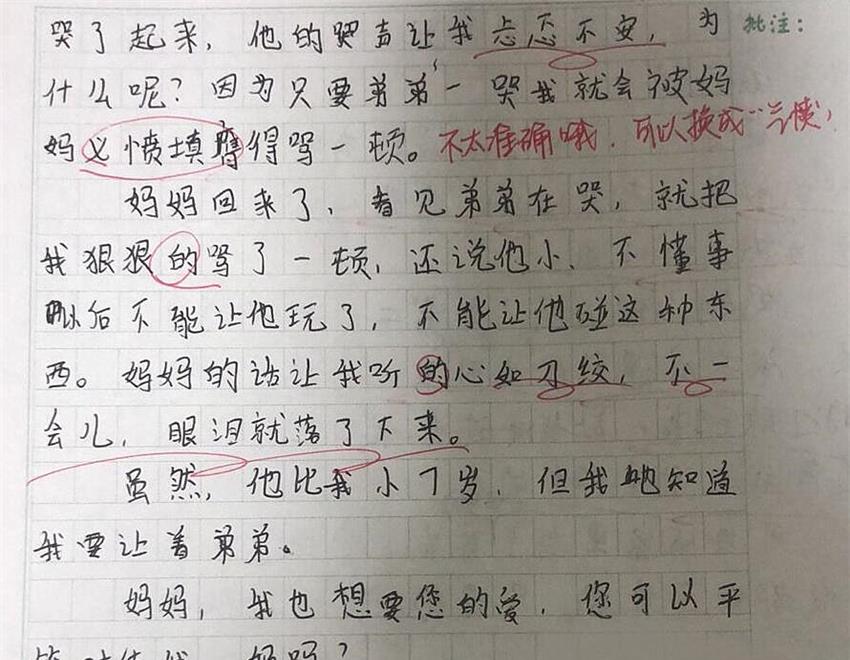 哭了起来，他的哭声让我忐忑不安，为
批注：
什么呢？因为只要弟弟一哭我就会被妈
妈义愤填膺得骂一顿。
不太准确哦，可以换成“
妈妈回来了，看见弟弟在哭，就把
我狠狠的骂了一顿，还说他小、不懂事
以后不能让他玩了，不能让他碰这种东
西。妈妈的话让我听的心如刀绞，不一
会儿，眼泪就落了下来。
虽然，他比我小7岁，但我也知道
我要让着弟弟。
妈妈，我也想要您的爱，您可以平
妈吗？